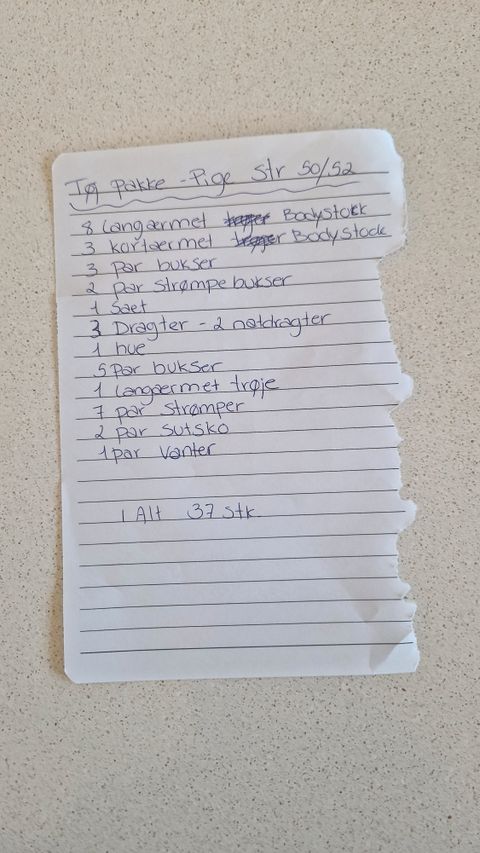 Tøj pakke - Pige str 50/52
8 Langærmet Bodystock
3 kortærmet Bodystock
3 par bukser
2 par strømpebukser
1 Sæt
3 Dragter - 2 natdragter
1 hue
5 Par bukser
1 langærmet trøje
7 par strømper
2 par sutsko
1 par vanter
I Alt 37 stk.